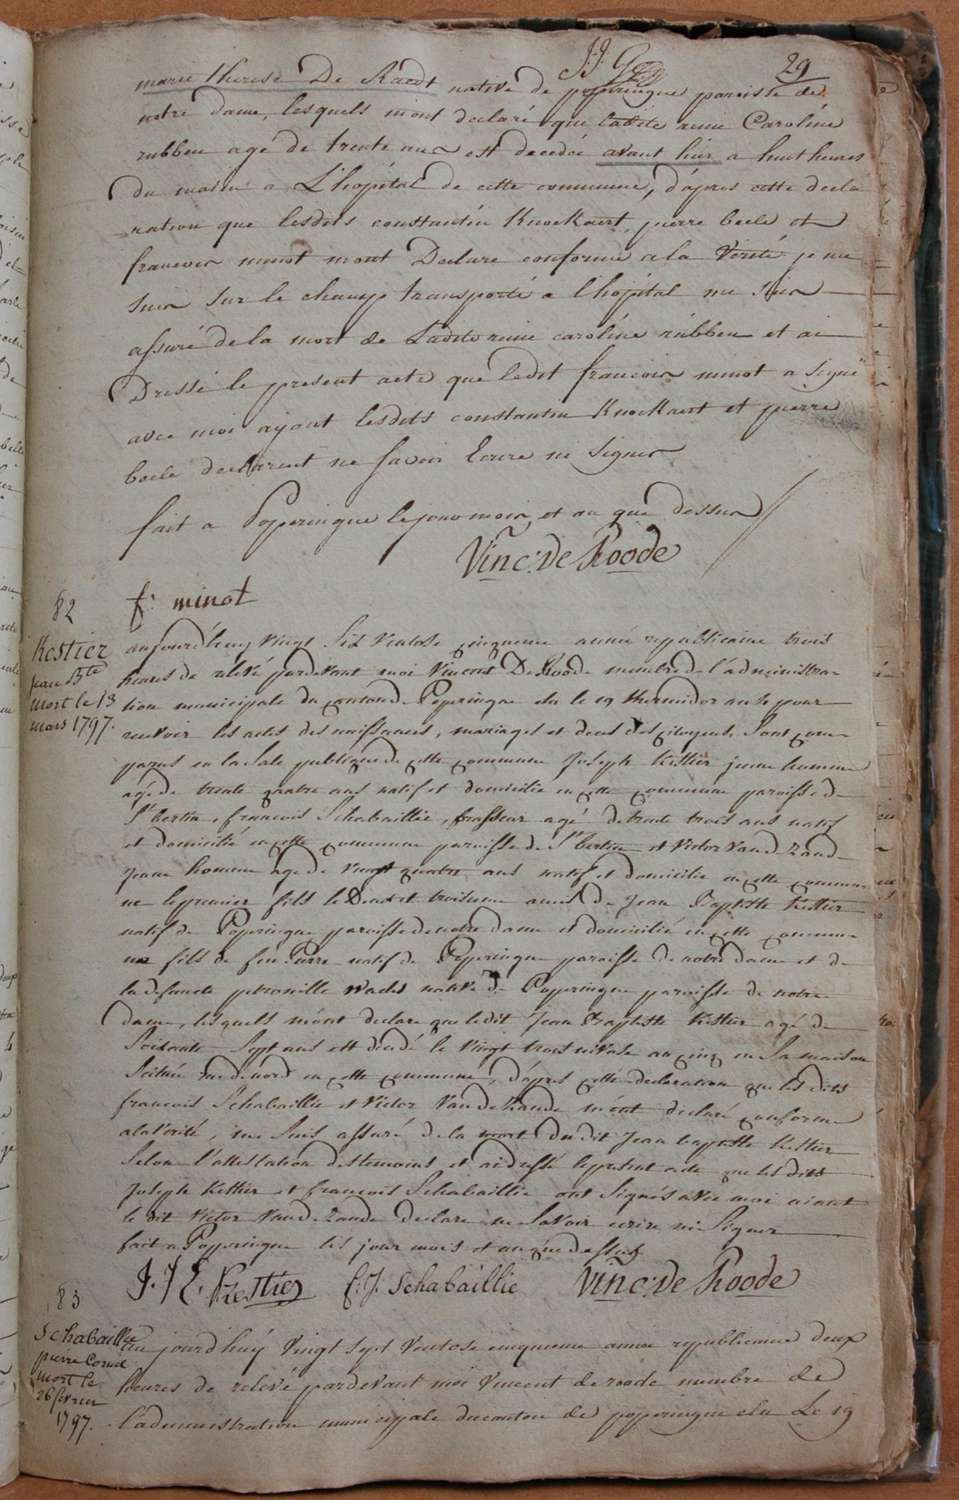 29
marie therese De Raedt native de poperingue paroisse de
notre dame, lesquels m'ont declaré que ladite anne Caroline
rubben agé de trente ans est decedée avant hier a huit heures
du matin a L'hopital de cette commune, d'apres cette decla
ration que lesdits constantin Knockaert, pierre boele et
francois minot m'ont Declaré conforme a la Verité je me
suis sur le champ transporté a l'hopital me suis
assuré de la mort de Ladite caroline rubben et ai
Dressé le present acte que ledit francois minot a signé
avec moi ayant lesdits constantin Knockaert et pierre
boele declarent ne savoir Ecrire ni Signer
fait a Poperingue le jour mois et an que dessus
Vinc: De Roode
f: minot
82
Kestier
jean Bte
mort le 13
mars 1797.
aujourd'huy vingt six ventose cinquieme année republicaine trois
heures de relevé pardevant moi Vincent De Roode membre de l'administra-
tion municipale du canton de Poperingue elu le 19 thermidor an 4e pour
recevoir les actes des naissances, mariages et deces des citoyens, sont com-
parus en la sale publique de cette commune Joseph Kestier jeune homme
agé de trente quatre ans natif et domicilié en cette commune paroisse de
St bertin, francois Schabaillie, brasseur agé de trente trois ans natif
et domicilié en cette commune paroisse de St bertin et Victor Vande Zande
jeune homme agé de vingt quatre ans natif et domicilié en cette commu-
ne le premier fils le Deux et troisieme amis de Jean Baptiste Kestier
natif de Poperingue paroisse de notre dame et domicilié en cette commune
fils de feu Pierre natif de Poperingue paroisse de notre dame et de
la defuncte petronille native de Poperingue paroisse de notre
dame, lesquels m'ont declaré que ledit Jean Baptiste Kestier agé de
soixante sept ans est decedé le vingt trois en sa maison
scituée rue de nord en cette commune, d'apres cette declaration que les dits
francois Schabaillie et Victor Vande Zande m'ont declaré conforme
a la Verité, me suis assuré de la mort du dit Jean baptiste Kestier
selon l'attestation des temoins et ai dressé le present acte que les dits
Joseph Kestier et francois Schabaillie ont signés avec moi aiant
le dit Victor Vande Zande declaré ne savoir ecrire ni signer
fait a Poperingue les jour mois et an que dessus
J. J. E. Kestier f: J. Schabaillie Vinc: De Roode
83
Schabaillie
pierre Corneil
mort le
26 fevrier
1797.
aujourd'huy vingt sept ventose cinquieme année republicaine deux
heures de relevé pardevant moi vincent de roode membre de
l'administration municipale du canton de poperingue elu Le 19